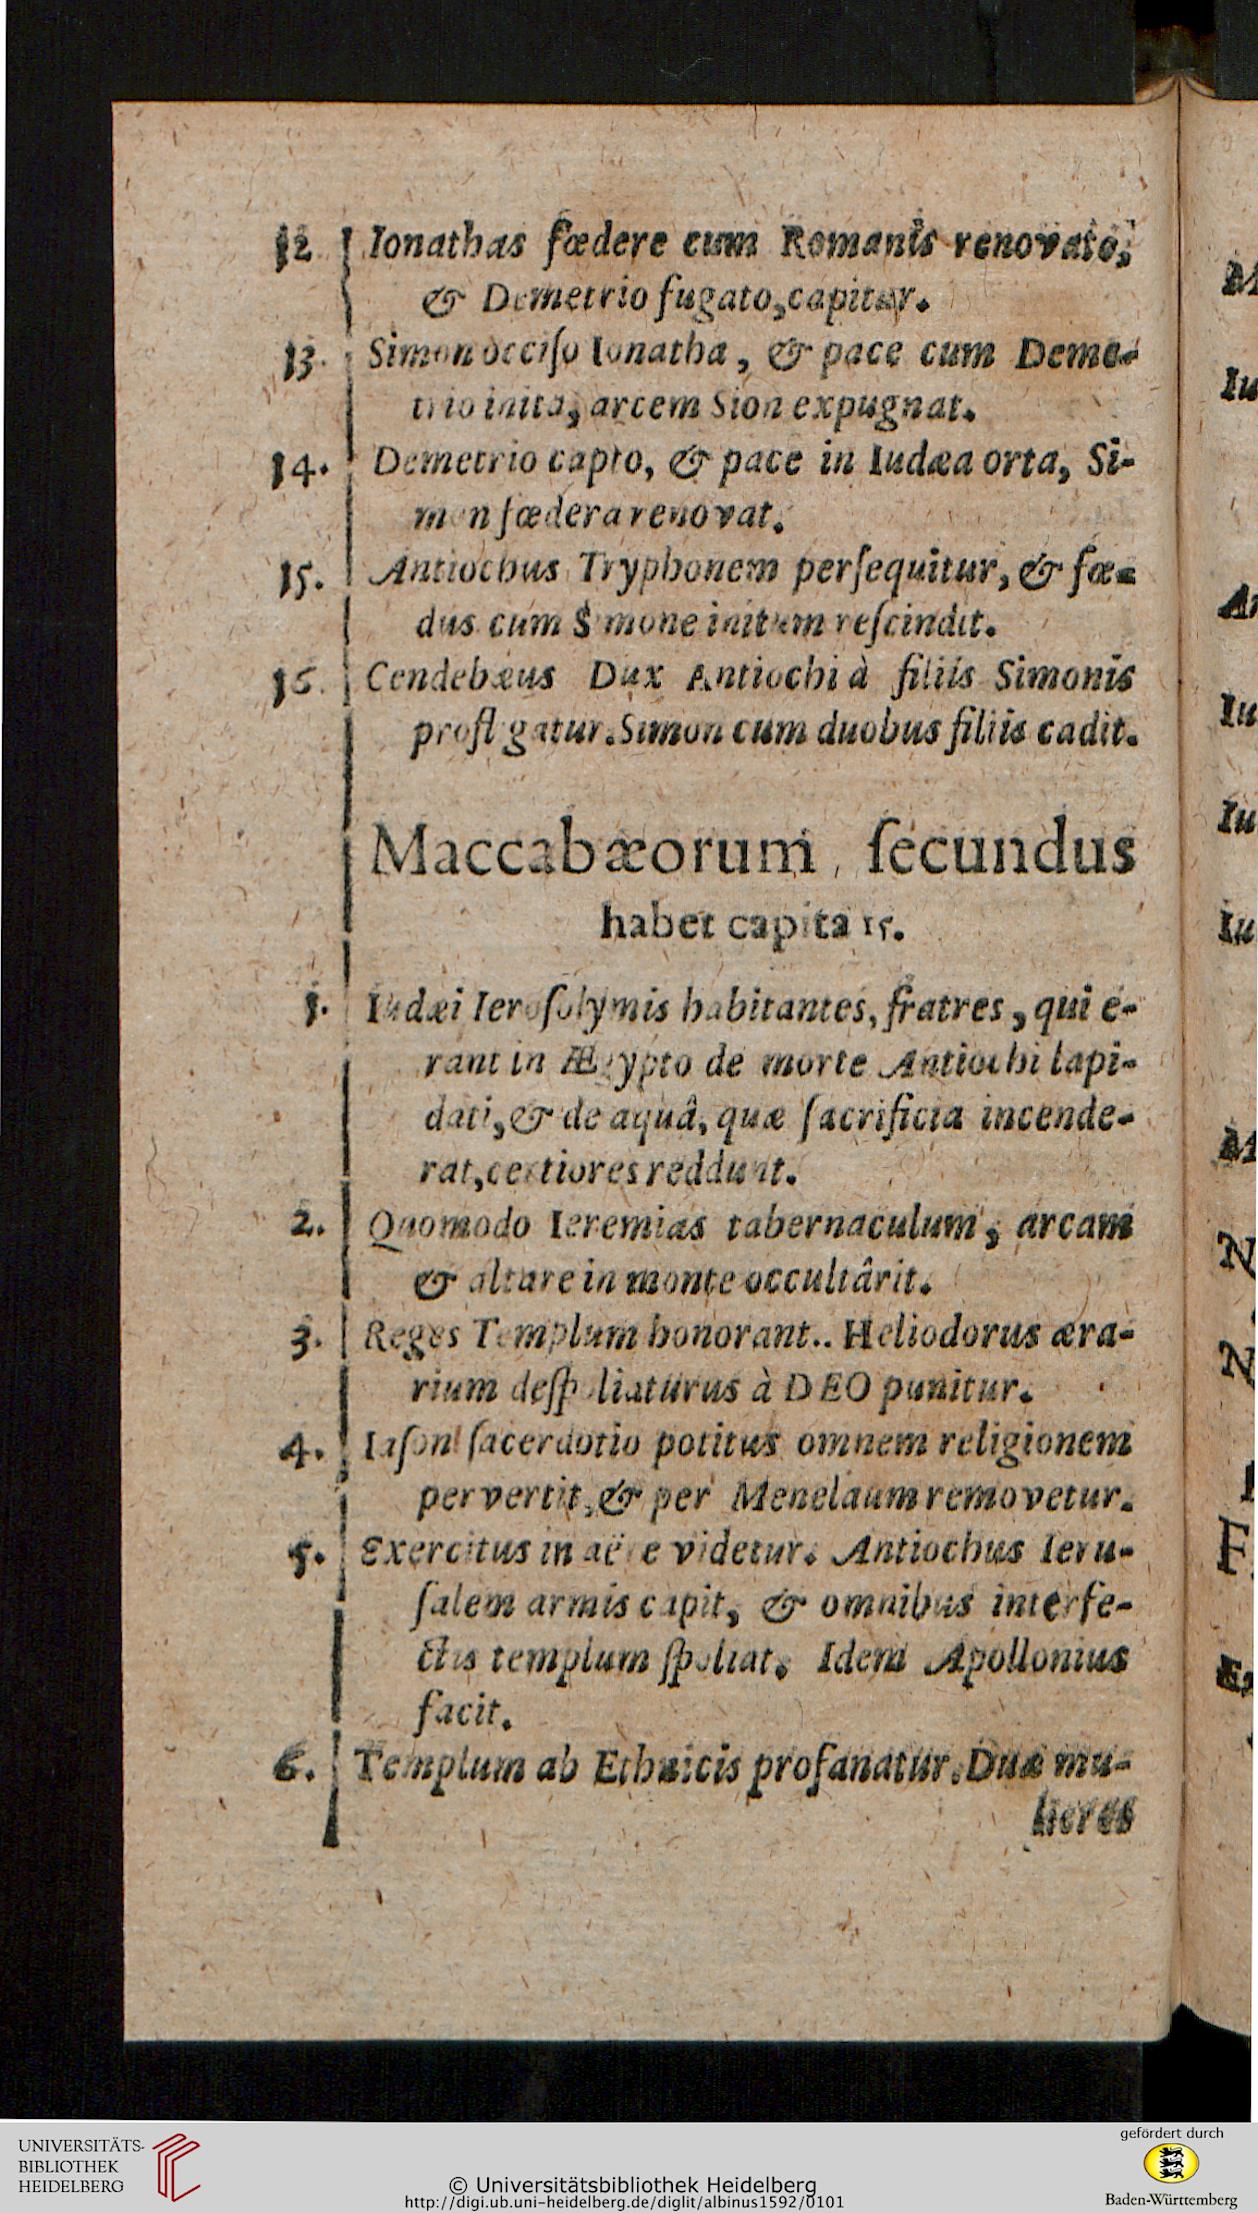 12 Ionathas fœdere cum Romanis renovato,
& Demetrio fugato, capitur.
13. Simon occiſo Ionatha, & pace cum Deme-
trio inita, arcem Sion expugnat.
14. Demetrio capto, & pace in Iudæa orta, Si-
mon fœdera renovat.
15. Antiochus Tryphonem perſequitur, & fœ-
dus cum Simone initum reſcindit.
16. Cendebæus Dux Antiochi à filiis Simonis
profligatur. Simon cum duobus filiis cadit.
Maccabæorum ſecundus
habet capita 15.
1. Iudæi Ieroſolymis habitantes, fratres, qui e-
rant in Ægypto de morte Antiochi lapi-
dati, & de aquâ, quæ ſacrificia incende-
rat, certiores reddunt.
2. Quomodo Ieremias tabernaculum, arcam
& altare in monte occultârit.
3. Reges Templum honorant.. Heliodorus æra-
rium deſpoliaturus à DEO punitur.
4. Iaſon ſacerdotio potitus omnem religionem
pervertit, & per Menelaum removetur.
5. Exercitus in aëre videtur. Antiochus Ieru-
ſalem armis capit, & omnibus interfe-
ctis templum ſpoliat. Idem Apollonius
facit.
6. Templum ab Ethnicis profanatur. Duæ mu-
lieres
UNIVERSITÄTS-
BIBLIOTHEK
HEIDELBERG
© Universitätsbibliothek Heidelberg
http://digi.ub.uni-heidelberg.de/diglit/albinus1592/0101
gefördert durch
Baden-Württemberg